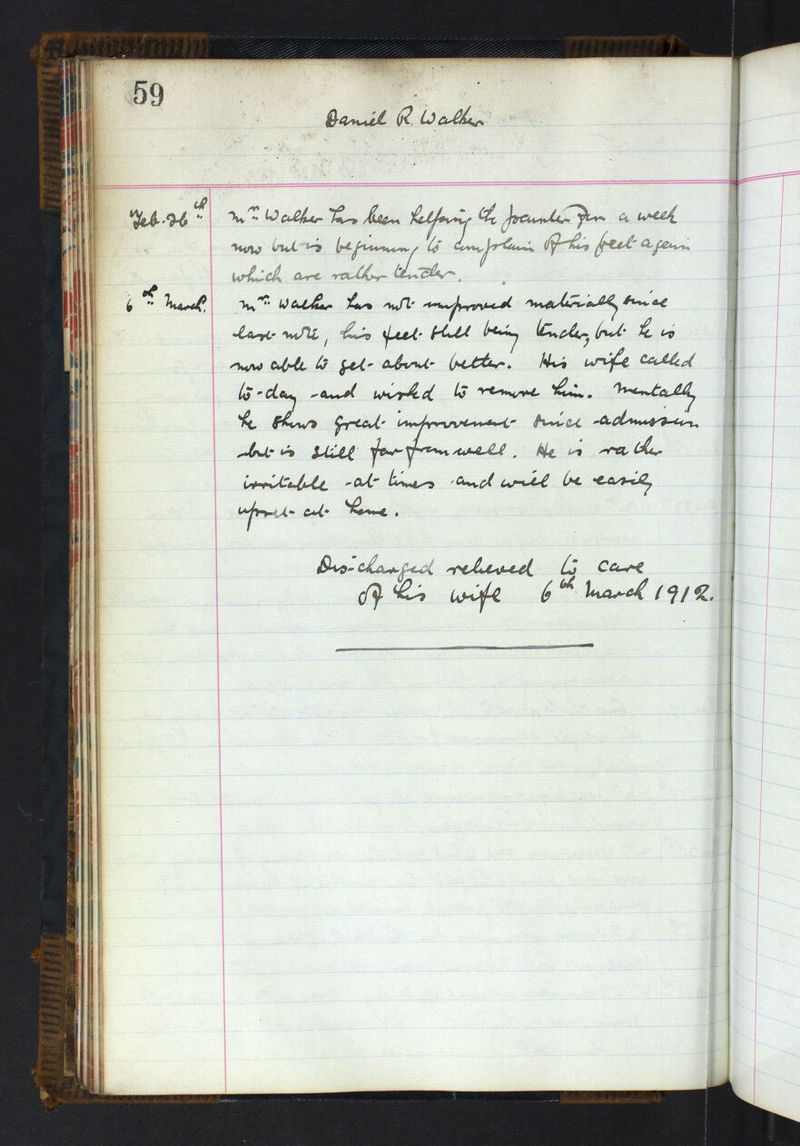 59
Daniel R. Walker
Feb. 26th Mr. Walker has been helping the for a week
now but is beginning to complain of his feet again
which are rather tender.
6th March. Mr. Walker has not improved materially since
last note, his feet still being tender, but he is
now able to get about better. His wife called
to-day and wished to remove him. Mentally
he shows great improvement since admission
but is still far from well. He is rather
irritable at times and will be easily
upset at home.
Discharged relieved to care
of his wife 6th March 1912.